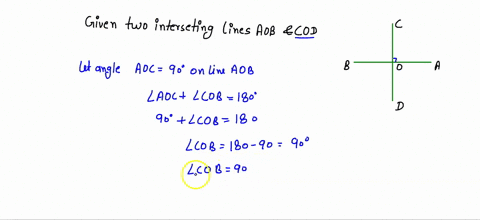 Given two interseting lines AOB & COD
C
Let angle AOC = 90° on line AOB
B
O
A
∠AOC + ∠COB = 180°
D
90° + ∠COB = 180
∠COB = 180 - 90 = 90°
∠COB = 90